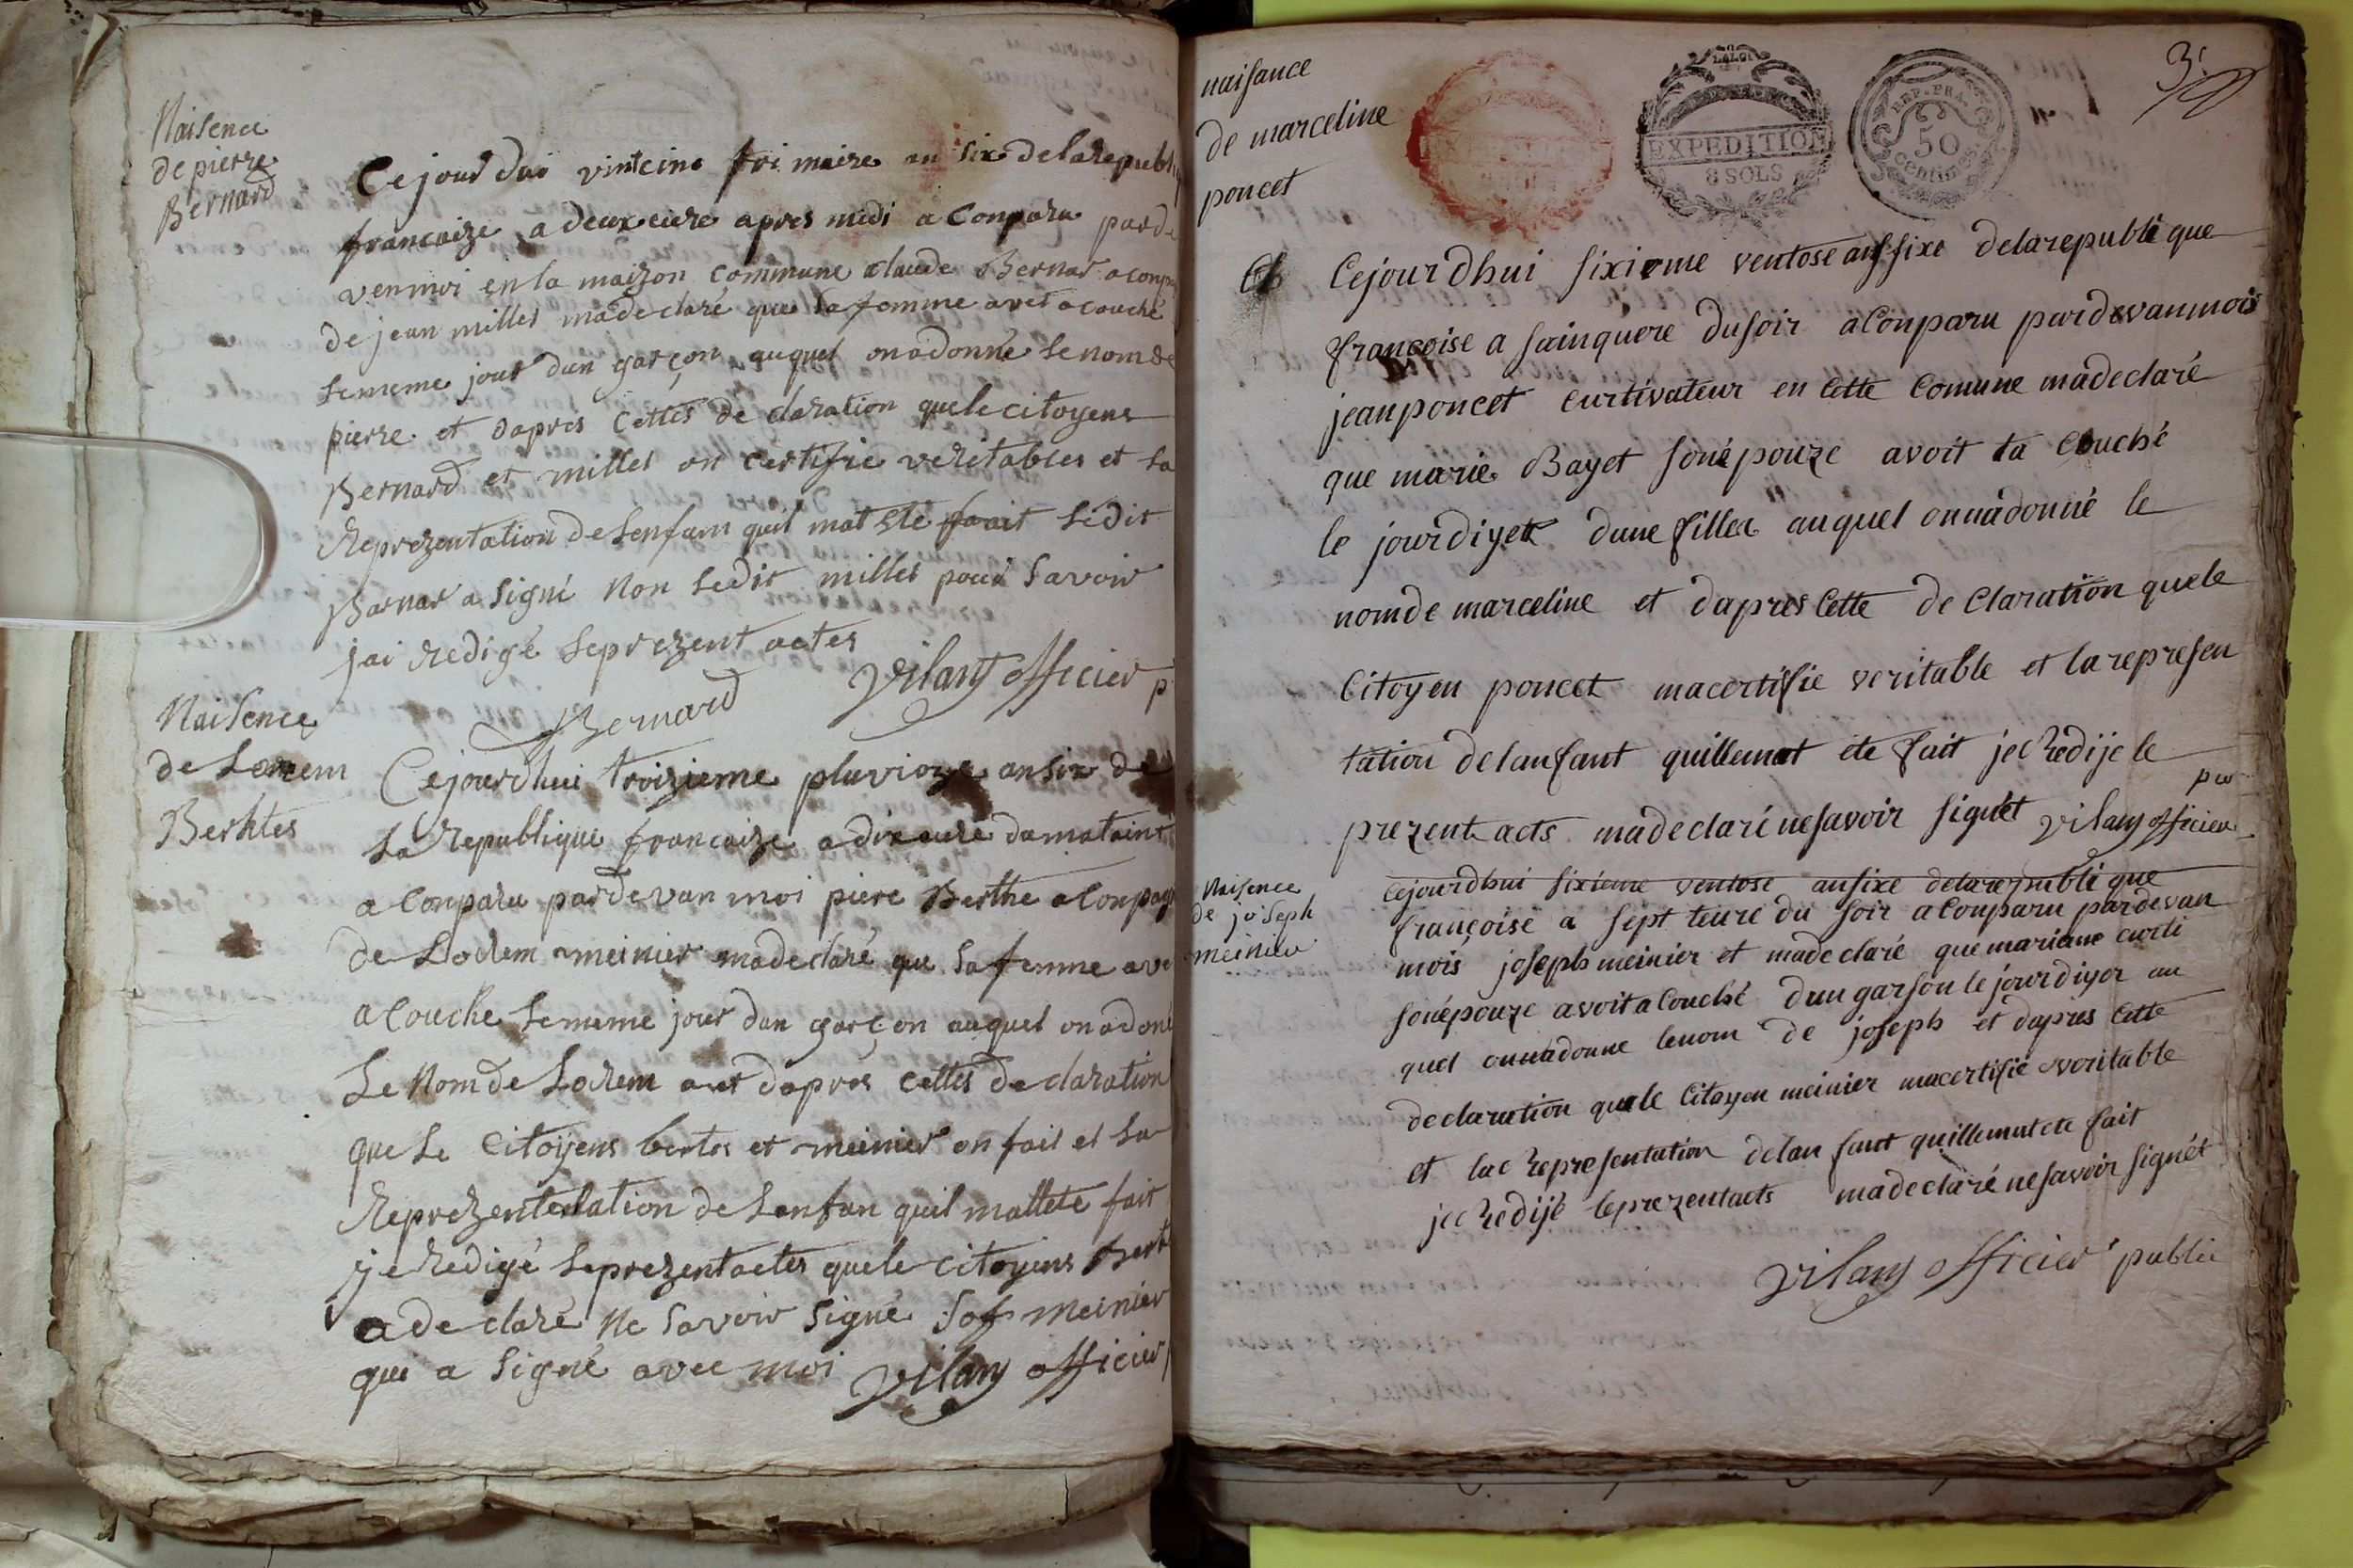 Naisence
de pierre
Bernard
Cejour dui vintcinc frimaire an six delarepubli
francaize a deux eure apres midi a Conparu parde
venmoi en la maizon Commune claude Bernar aconp
de jean millet madeclaré que sa femme avet acouché
sememe jour dun garçon auquel on adonné se nomde
pierre et dapres Cettes de claration quele citoyens
Bernard et millet on certifie veritables et sa
Reprezentation de senfam quil mat ete fait sedit
Barnar a signé non sedit millet pour savoir
jai Redigé seprezent actes
Bernard
vilany officier p
Naisence
de Lorem
Berhtes
Cejourdhui troizieme pluvioze ansix de
La republique francaize adixeure dumataint
a Conparu pardevan moi piere Berthe aConpag
de Lorem meinier madeclaré que sa femme ave
a Couche sememe jour dun garçon auquel on adoné
Le Nomde Lorem aut dapres cettes declaration
que Le Citoyens bertes et meinier on fait et sa
de senfan quil mattete fait
je Redigé seprezentactes quele citoyens Bert
a declaré Ne savoir signé meinier
qui a signé avec moi vilany officier
3.
LA LOI
EXPEDITION
8 SOLS
REP. FRA.
50
centimes
naisance
de marceline
poncet
Cejourdhui sixieme ventose ansixe delarepublique
françoise a sainquere dusoir aConparu pardevanmois
jeanponcet curtivateur en Cette Comune madeclaré
que marie Bayet sonépouze avoit ta Couché
le jourdiyer dune fillea auquel onnadonné le
nomde marceline et dapres Cette declaration quele
Citoyen poncet macertifie veritable et larepresen
tation delanfant quillemat ete fait jeeRedije le
prezent acts madeclaré nesavoir signet vilany officier
pu
Naisence
de joiseph
meinier
Cejourdhui sixieme ventose ansixe delarepublique
françoise a sept teure du soir aConparu pardevan
mois joseph meinier et madeclaré que mariane curti
sonépouze avoit aCouché dun garson le jourdiyer au
quel onnadonne lenom de joseph et dapres Cette
declaration quele Citoyen meinier macertifie veritable
et lae representation delanfant quillematete fait
jeeRedijé leprezentacts madeclaré nesavoir signét
vilany officier public